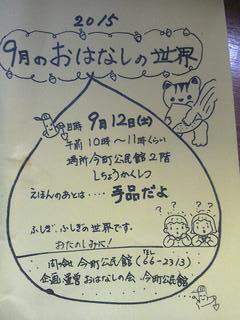 2015
9月のおはなしの世界
日時 9月12日(土)
午前10時〜11時くらい
場所 今町公民館2階
しちょうかくしつ
えほんのあとは・・・・ 手品だよ
ふしぎ、ふしぎの世界です。
おたのしみに!
問合せ 今町公民館(TEL 66-2313)
企画運営 おはなしの会 今町公民館